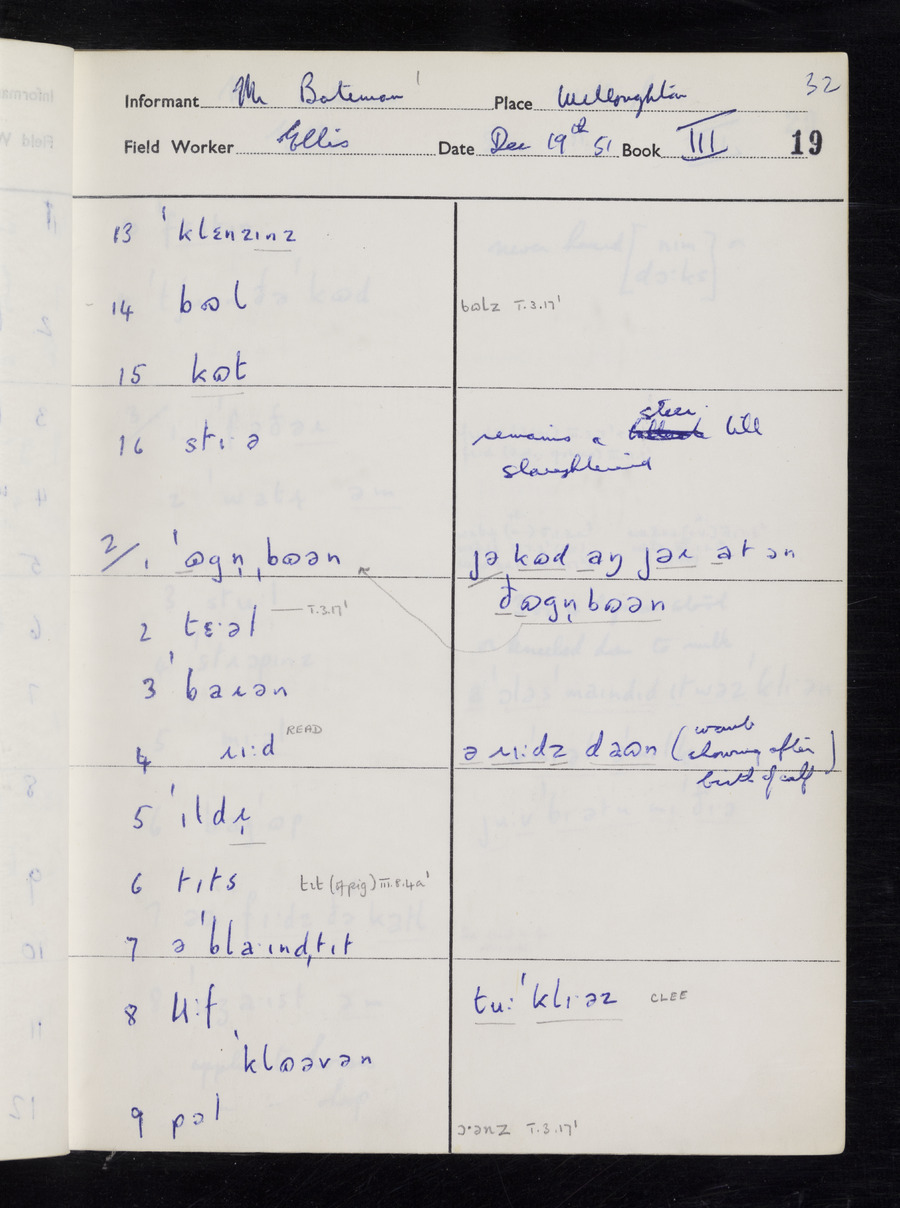 32
Informant Mr Bateman Place Willoughton
Field Worker Ellis Date Dec 19th 51 Book III 19
13 ˈklɛnzɪnz
14 bɷl bɷlz T.3.17'
15 kɷt
16 stɪ·ə remains a steer till
slaughtered
2/1 ˈɷgn̩ˌbɷən jə kɷd aŋ jəɹ at ən
ðɷgn̩bɷən
2 tɛ·əl T.3.17'
3 ˈbaɹən
4 ɹi:d READ ə ɹi:dz daɷn (
showing after
birth of calf)
5 ˈɪldɹ̩
6 tɪts tɪt (of pig) III.8.4a'
7 ə ˈbla·ɪndˌtɪt
8 li:f tu:ˈklɪ·əz CLEE
ˈklɷəvən
9 pəl
ɔ·ənz T.3.17'